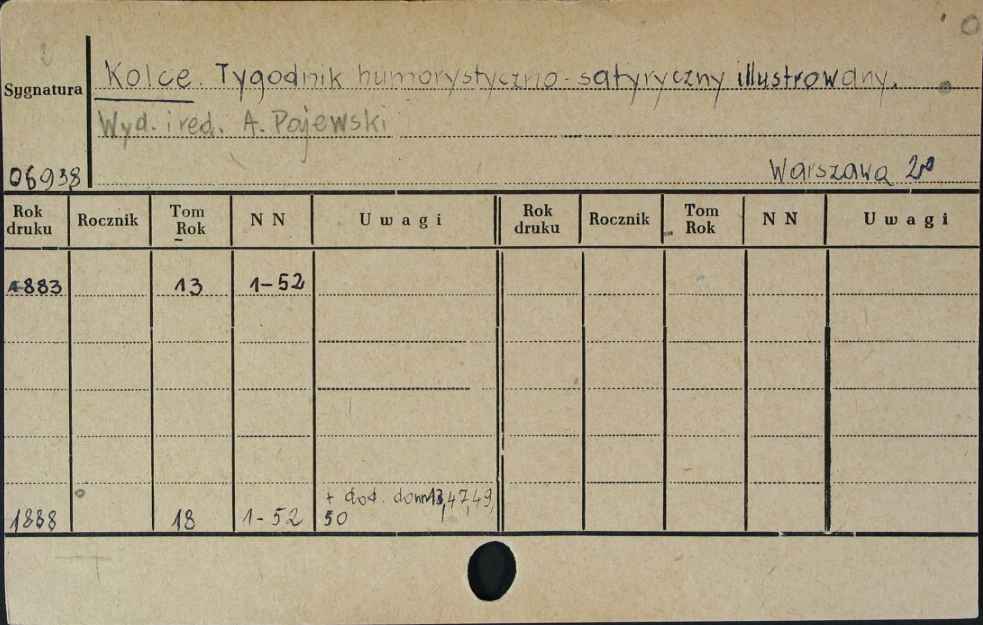 Sygnatura
Kolce. Tygodnik humorystyczno-satyryczny illustrowany.
Wyd. i red. A. Pajewski
06938
Warszawa 2º
Rok druku Rocznik Tom Rok NN Uwagi Rok druku Rocznik Tom Rok NN Uwagi
1883 13 1-52
+ dod. do nn 13, 47, 49,
1888 18 1-52 50